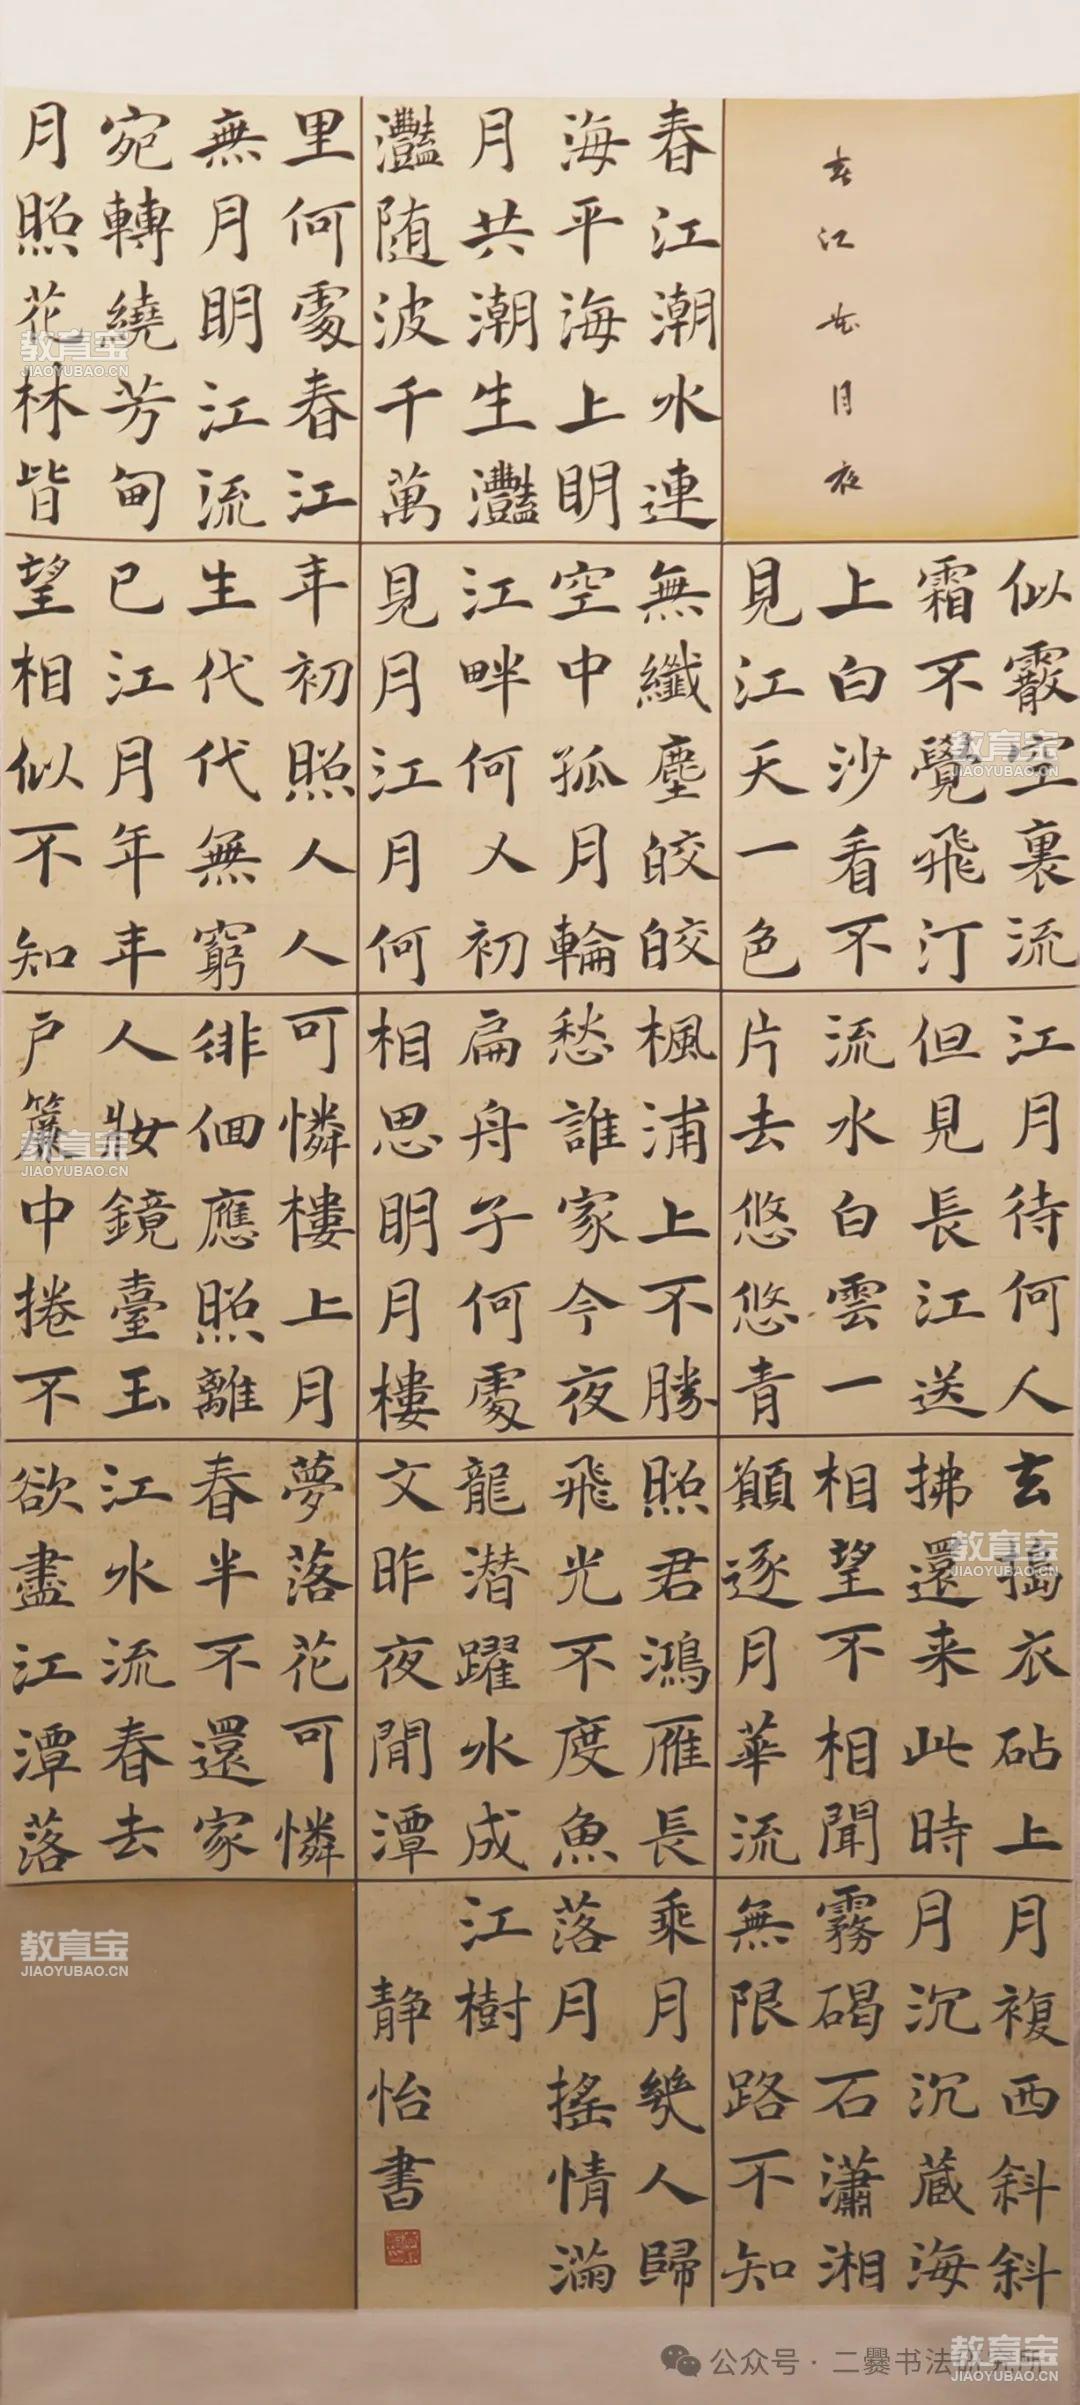 春江花月夜
春江潮水連
海平海上明
月共潮生灩
灩随波千萬
里何處春江
無月明江流
宛轉繞芳甸
月照花林皆
似霰空裏流
霜不覺飛汀
上白沙看不
見江天一色
無纖塵皎皎
空中孤月輪
江畔何人初
見月江月何
年初照人人
生代代無窮
已江月年年
望相似不知
江月待何人
但見長江送
流水白雲一
片去悠悠青
楓浦上不勝
愁誰家今夜
扁舟子何處
相思明月樓
可憐樓上月
徘徊應照離
人妝鏡臺玉
户簾中捲不
玄搗衣砧上
拂還来此時
相望不相聞
願逐月華流
照君鴻雁長
飛光不度魚
龍潜躍水成
文昨夜閒潭
夢落花可憐
春半不還家
江水流春去
欲盡江潭落
月複西斜斜
月沉沉藏海
霧碣石瀟湘
無限路不知
乘月幾人歸
落月搖情滿
江樹
静怡書
教育宝
JIAOYUBAO.CN
教育宝
JIAOYUBAO.CN
教育宝
JIAOYUBAO.CN
教育宝
JIAOYUBAO.CN
教育宝
JIAOYUBAO.CN
教育宝
JIAOYUBAO.CN
公众号·二爨书法研究所